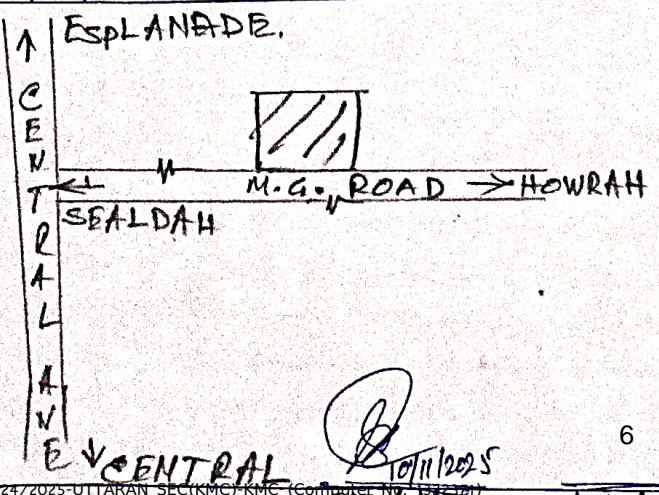 ↑ ESPLANADE.
CENTRAL AVE
M.G. ROAD → HOWRAH
← SEALDAH
↓ CENTRAL
10/11/2025
6
24/2025-UTTARAN SEC(KMC)-KMC (Computer No.